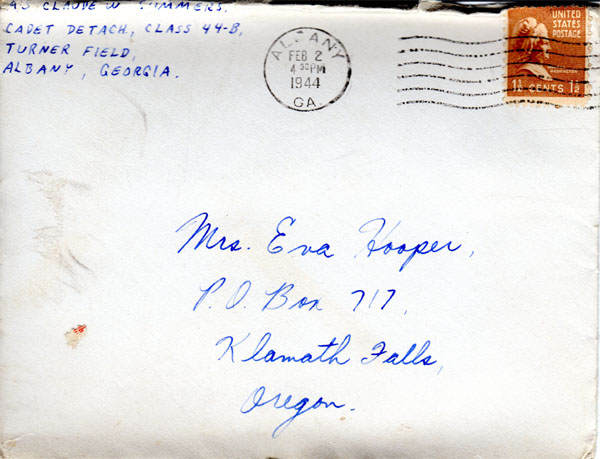 CLAUDE W
CADET DETACH, CLASS 44-B,
TURNER FIELD,
ALBANY, GEORGIA.
ALBANY
FEB 2
4 30 PM
1944
GA.
UNITED
STATES
POSTAGE
WASHINGTON
1½ CENTS 1½
Mrs. Eva Hooper,
P.O. Box 717,
Klamath Falls,
Oregon.